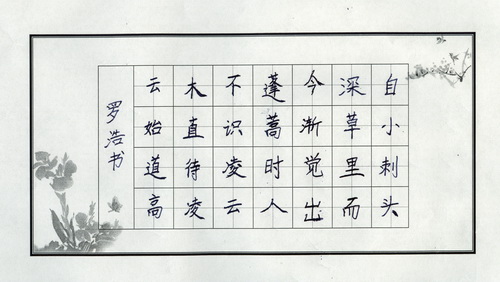 自小刺头
深草里而
今渐觉出
蓬蒿时人
不识凌云
木直待凌
云始道高
罗浩书